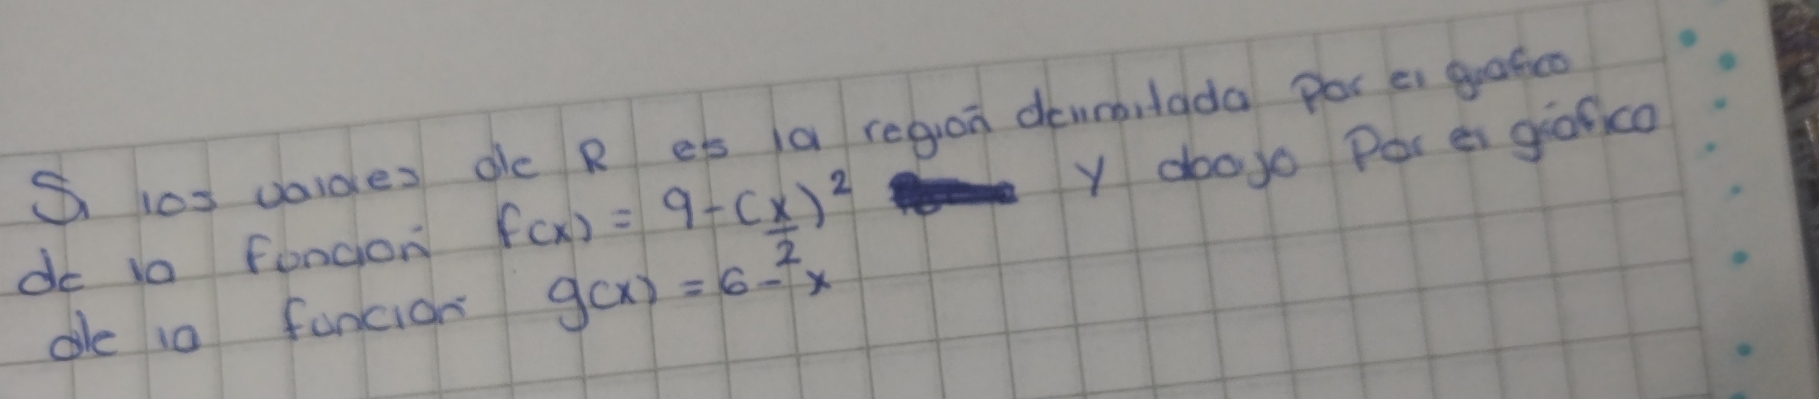 Si los valores de R es la región delimitada por el grafico
de la funcion f(x) = 9 - (x/2)² y abajo por el gráfico
de la funcion g(x) = 6 - x